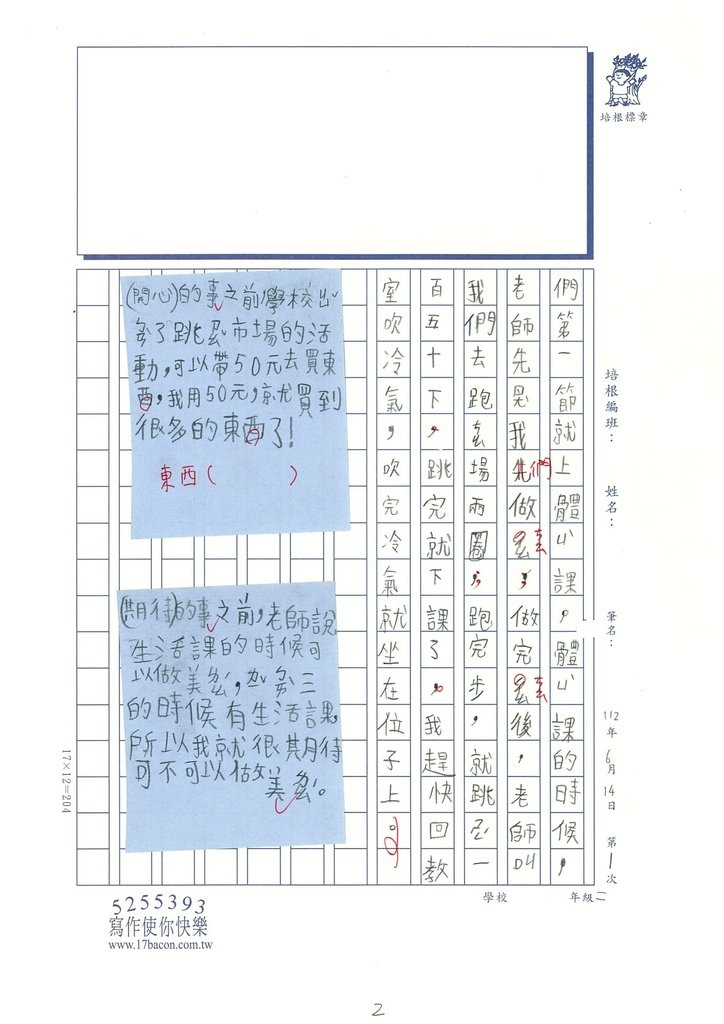 培根標章
培根編班：
姓名：
筆名：
112年6月14日 第1次
們第一節就上體ㄩˋ課，體ㄩˋ課的時候，
老師先我們做，做完後，老師叫
我們去跑場兩圈，跑完步，就跳一
百五十下，跳完就下課了，我趕快回教
室吹冷氣，吹完冷氣就坐在位子上。
(開心)的事之前，學校出
了跳市場的活
動，可以帶50元去買東
西，我用50元，就買到
很多的東西了!
東西( )
(期待)的事之前，老師說
生活課的時候可
以做美ㄌㄠˊ，
的時候有生活課，
所以我就很期待
可不可以做美ㄌㄠˊ。
17×12=204
學校
年級二
5255393
寫作使你快樂
www.17bacon.com.tw
2